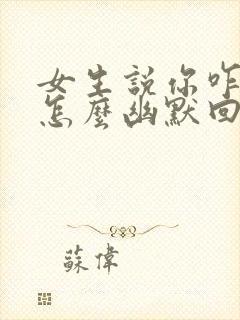 女生説你咋
怎麼幽默回
蘇偉